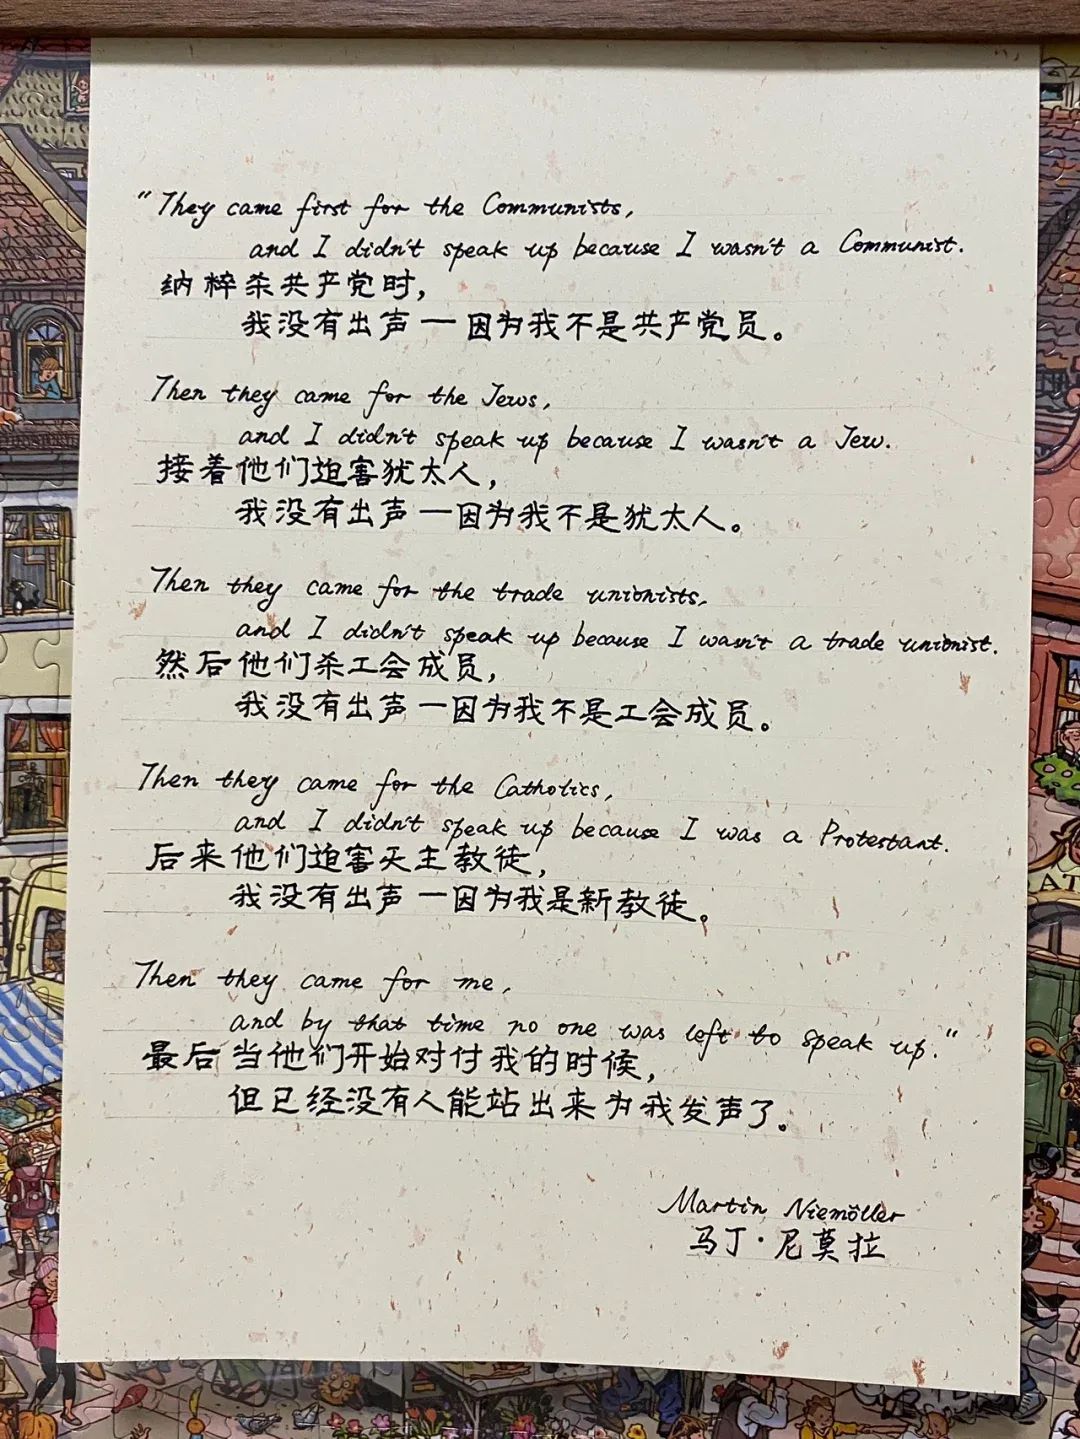 "They came first for the Communists,
and I didn't speak up because I wasn't a Communist.
纳粹杀共产党时，
我没有出声一因为我不是共产党员。
Then they came for the Jews,
and I didn't speak up because I wasn't a Jew.
接着他们迫害犹太人，
我没有出声一因为我不是犹太人。
Then they came for the trade unionists,
and I didn't speak up because I wasn't a trade unionist.
然后他们杀工会成员，
我没有出声一因为我不是工会成员。
Then they came for the Catholics,
and I didn't speak up because I was a Protestant.
后来他们迫害天主教徒，
我没有出声一因为我是新教徒。
Then they came for me,
and by that time no one was left to speak up."
最后当他们开始对付我的时候，
但已经没有人能站出来为我发声了。
Martin Niemöller
马丁·尼莫拉